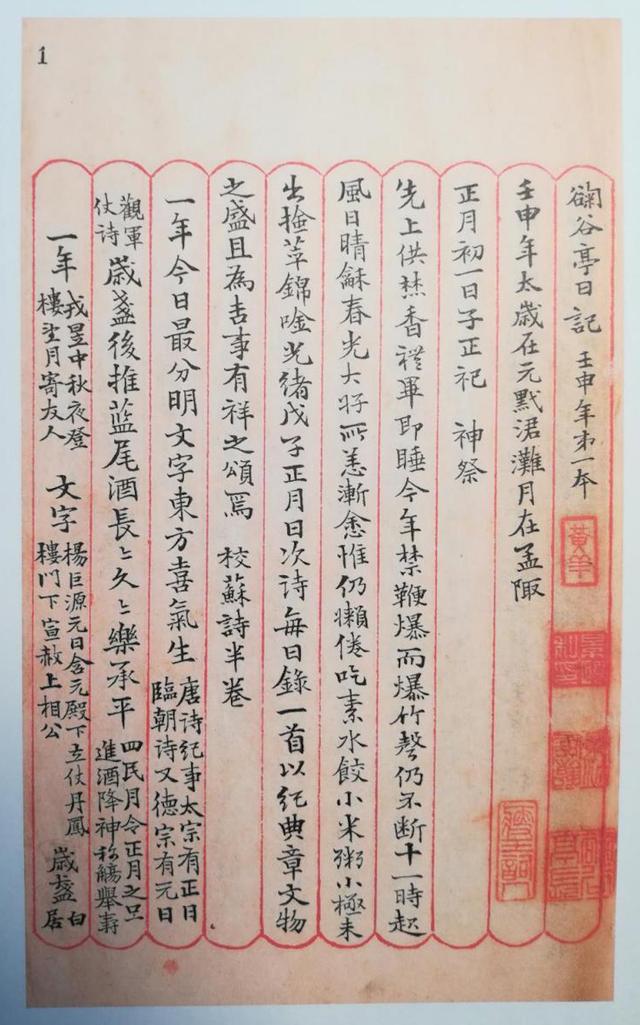 1
䕮谷亭日記 壬申年第一本
黃羊
壬申年太歲在元黓涒灘月在孟陬
正月初一日子正祀 神祭
先上供焚香禮畢即睡今年禁鞭爆而爆竹聲仍不斷十一時起
風日晴龢春光大好所恙漸愈惟仍懶倦吃素水餃小米粥小極未
出撿萃錦唫光緒戊子正月日次詩每日錄一首以紀典章文物
之盛且為吉事有祥之頌焉 校蘇詩半卷
一年今日最分明文字東方喜氣生 唐詩紀事太宗有正日
臨朝詩又德宗有元日
觀軍
仗詩 歲盞後推藍尾酒長〻久〻樂承平 四民月令正月之旦
進酒降神称觴舉壽
一年 戎昱中秋夜登
樓望月寄友人 文字 楊巨源元日含元殿下立仗丹鳳
樓門下宣赦上相公 歲盞 白
居